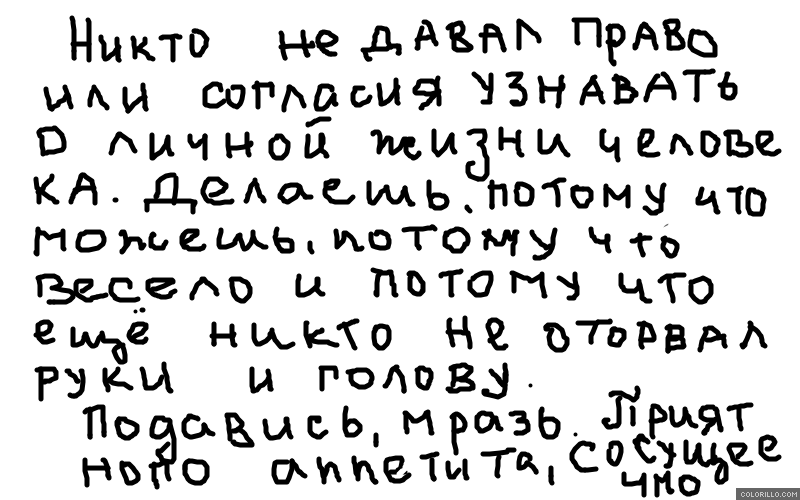 Никто не давал право
или согласия узнавать
о личной жизни челове
ка. Делаешь, потому что
можешь, потому что
весело и потому что
ещё никто не оторвал
руки и голову.
Подавись, мразь. Прият
ного аппетита, сосущее
чмо
COLORILLO.COM